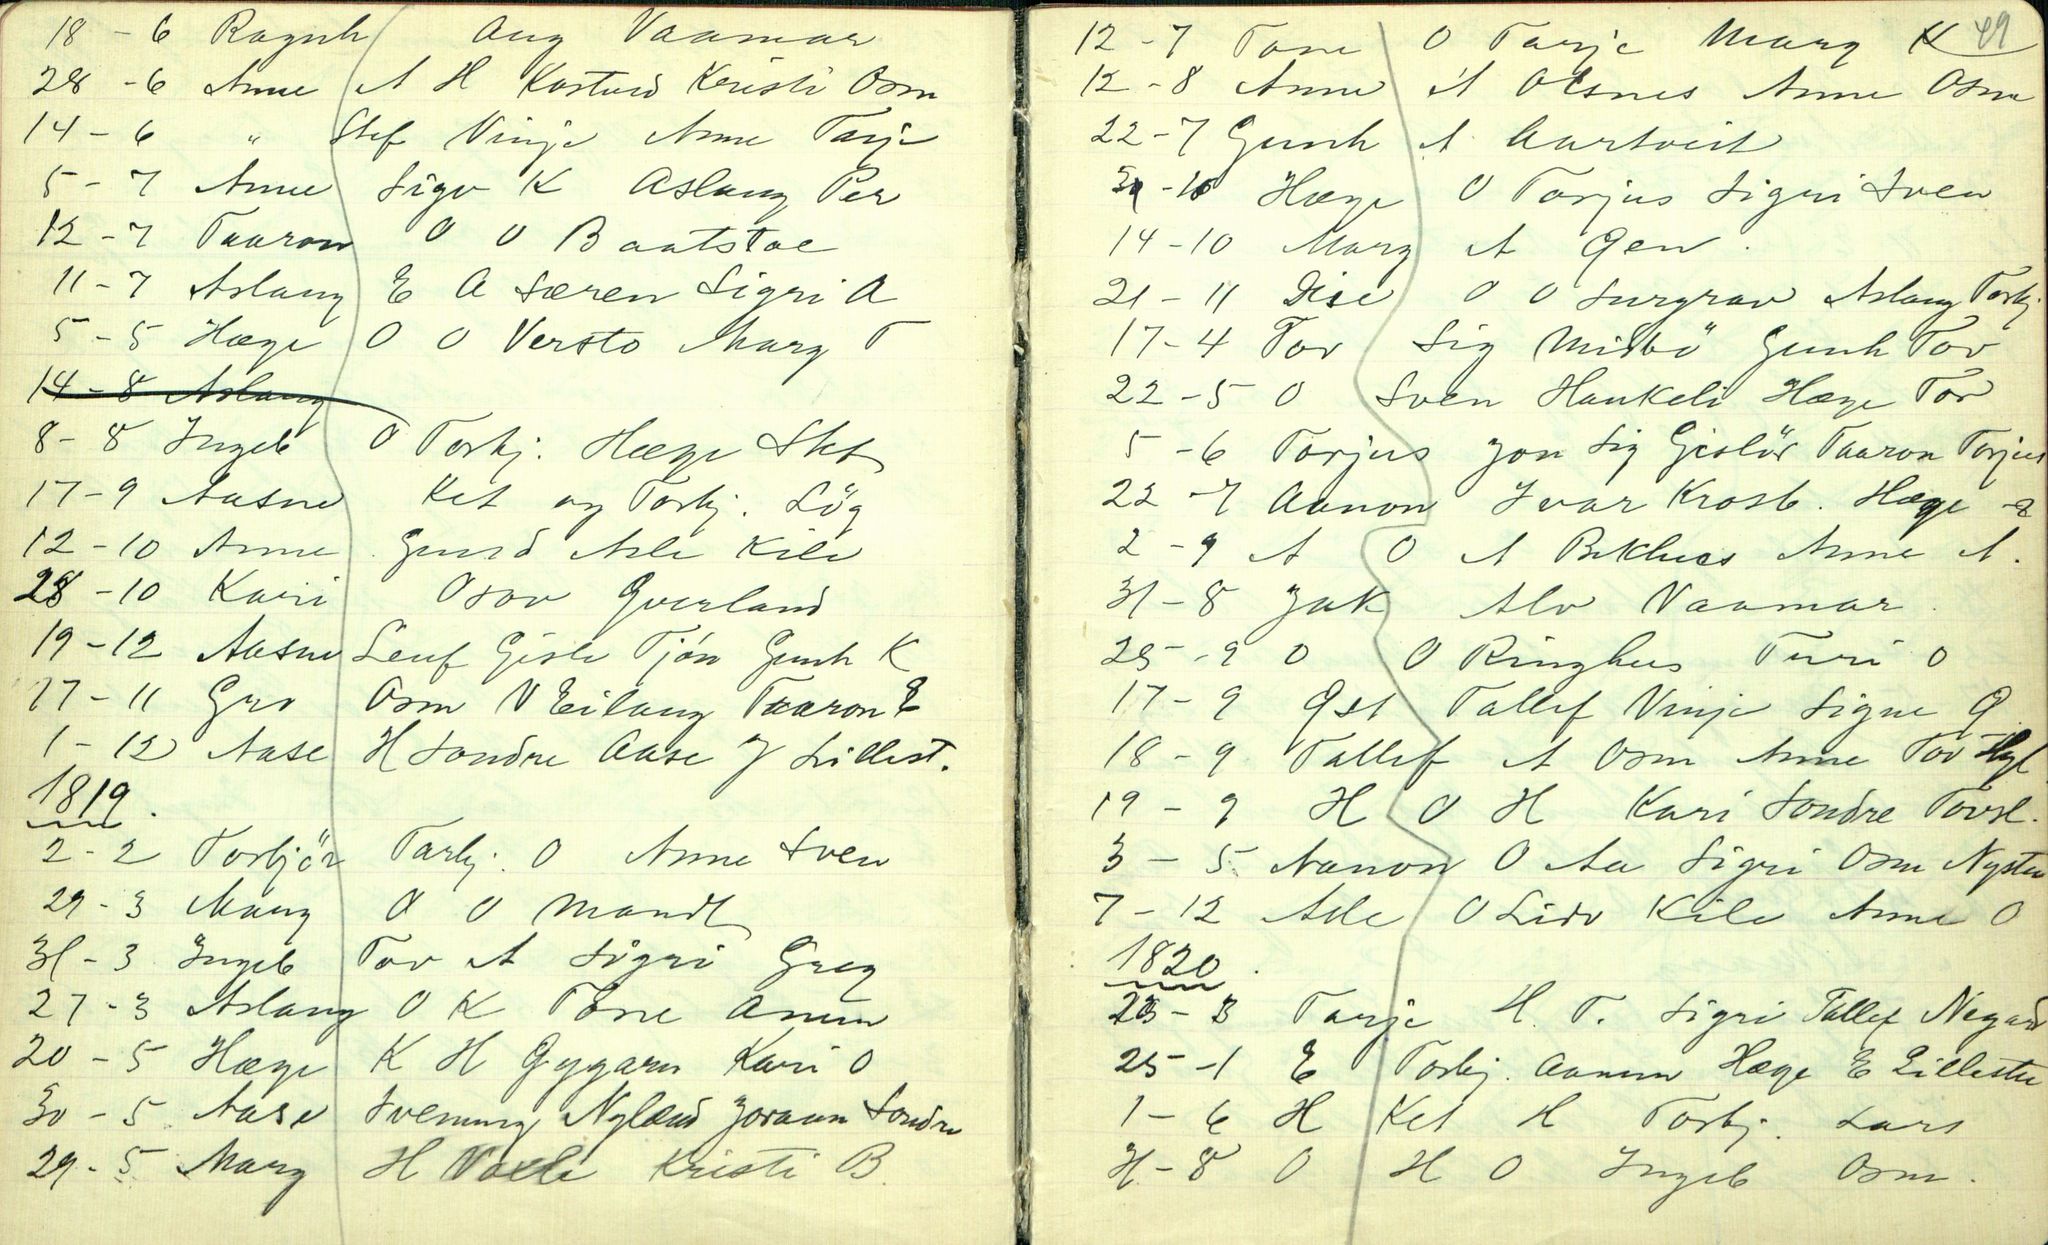 18 - 6 Ragnh Aug Vaamar
28 - 6 Anne A H Kostved Kristi Osm
14 - 6 " Stef Vinje Anne Tarje
5 - 7 Anne Sigv K Aslaug Per
12 - 7 Taaron O O Baatstoe
11 - 7 Aslaug E A Særen Sigri A
5 - 5 Hæge O O Versto Marg T
14 - 8 Aslaug
8 - 8 Ingeb O Torbj. Hæge Stef
17 - 9 Aasne Ket og Torbj. Lög
12 - 10 Anne Gunld Asle Kile
28 - 10 Kari Osov Qverland
19 - 12 Aasne Leuf Gisle Tjön Gunh K
17 - 11 Gro Osm V Eilaug Taaron E
1 - 12 Aase H Sondre Aase J Lillest.
1819.
2 - 2 Torbjör Tarbj. O Anne Sven
29 - 3 Marg O O Mandt
31 - 3 Ingeb Tov A Sigri Greg
27 - 3 Aslaug O K Tone Anun
20 - 5 Hæge K H Gygarn Kari O
30 - 5 Aase Svenung Nylænd Joraan Sondre
29 - 5 Marg H Vaxle Kristi B.
49
12 - 7 Tone O Tarje Marg K
12 - 8 Anne A Olsnes Anne Osm
22 - 7 Gunh A Aartveit
31 - 10 Hæge O Torjus Sigri Sven
14 - 10 Marg A Gen.
21 - 11 Dise O O Surgrav Aslaug Torbj.
17 - 4 Tov Sig Midbö Gunh Tov
22 - 5 O Sven Haukeli Hæge Tov
5 - 6 Torjus Jon Sig Gislör Taaron Torjus
22 - 7 Aanon Ivar Krosb. Hæge
2 - 9 A O A Bekhus Anne A.
31 - 8 Jak Alv Vaamar.
25 - 9 O O Ringhus Turi O
17 - 9 Qst Tallef Vinje Signe Q
18 - 9 Tallef A Osm Anne Tov Hyl
19 - 9 H O H Kari Sondre Tovsl.
3 - 5 Aanon O Aa Sigri Osm Nystu
7 - 12 Asle O Lidv Kile Anne O
1820.
23 - 3 Tarje H. T. Sigri Tallef Negard
25 - 1 E Torbj. Aanun Hæge E Lillestu
1 - 6 H Ket H Torbj. Lars
31 - 8 O H O Ingeb Osm.